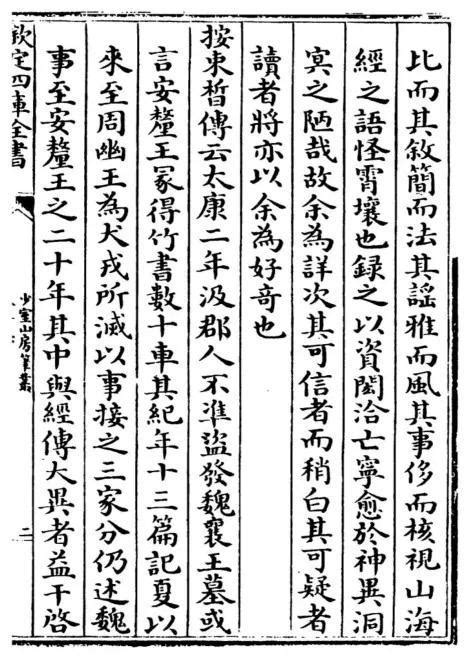 比而其敘簡而法其謡雅而風其事侈而核視山海
經之語怪霄壤也録之以資閎洽亡寧愈於神異洞
㝠之陋哉故余為詳次其可信者而稍白其可疑者
讀者將亦以余為好奇也
按束晳傳云太康二年汲郡人不準盜發魏襄王墓或
言安釐王冢得竹書數十車其紀年十三篇記夏以
來至周幽王為犬戎所滅以事接之三家分仍述魏
事至安釐王之二十年其中與經傳大異者益干啓
欽定四庫全書
少室山房筆叢
二